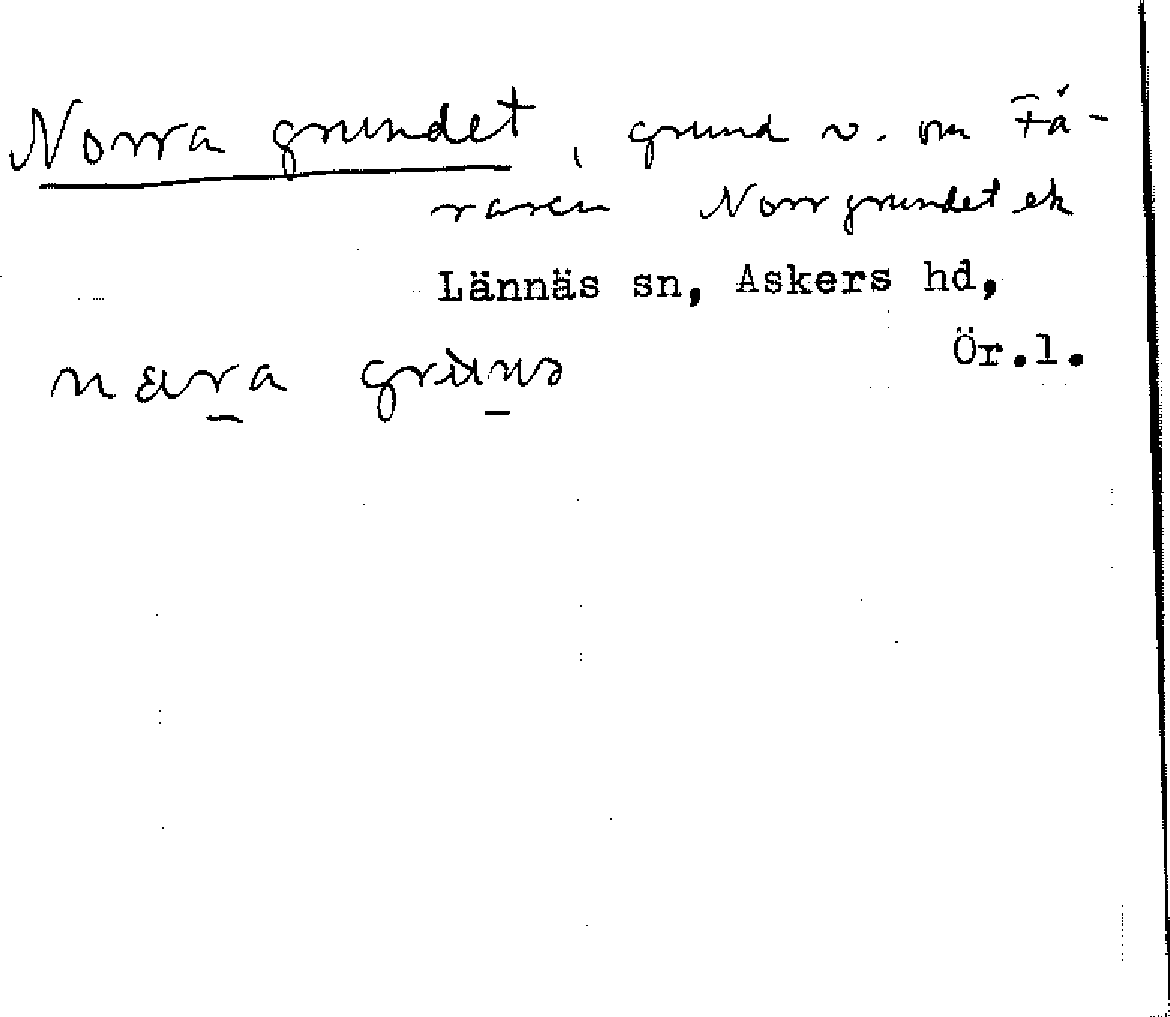 Norra grundet, grund v. om Få-
raren Norrgrundet ek
Lännäs sn, Askers hd,
Ör.l.